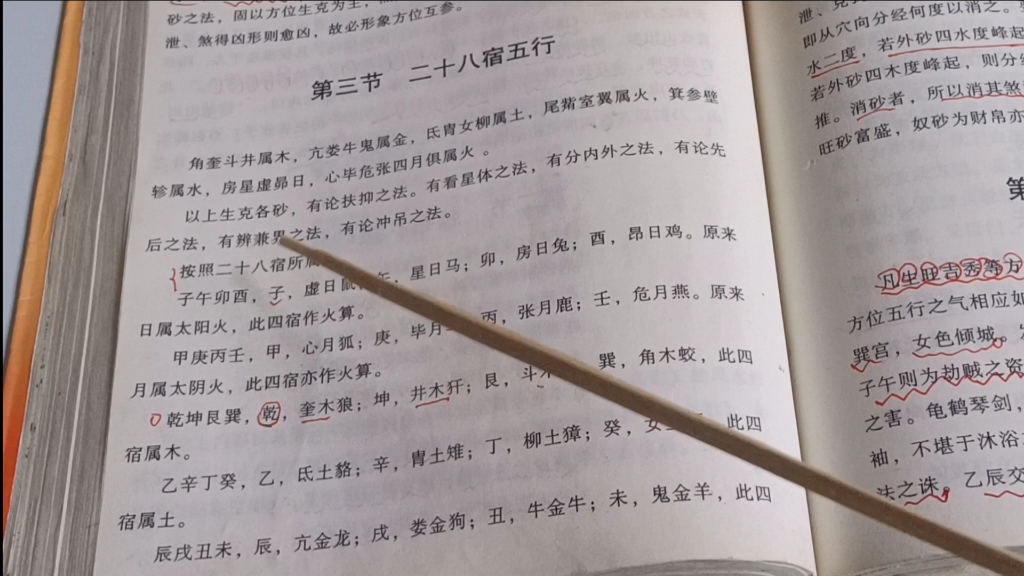 砂之法，固以方位生克为主，
泄、煞得凶形则愈凶，故必形象方位互参。
第三节　二十八宿五行
角奎斗井属木，亢娄牛鬼属金，氐胃女柳属土，尾觜室翼属火，箕参壁
轸属水，房星虚昴日，心毕危张四月俱属火。
以上生克各砂，有论扶抑之法。有看星体之法，有分内外之法，有论先
后之法，有辨兼界之法，有论冲吊之法。
按照二十八宿所属
子午卯酉，子，虚日鼠 午，星日马；卯，房日兔；酉，昂日鸡。原来
日属太阳火，此四宿作火算。
甲庚丙壬，甲，心月狐；庚，毕月 丙，张月鹿；壬，危月燕。原来
月属太阴火，此四宿亦作火算。
乾坤艮巽，乾，奎木狼；坤，井木犴；艮，斗木 巽，角木蛟，此四
宿属木。
乙辛丁癸，乙，氐土貉；辛，胃土雉；丁，柳土獐；癸，女 此四
宿属土。
辰戌丑未，辰，亢金龙；戌，娄金狗；丑，牛金牛；未，鬼金羊，此四
即从穴向分经何度以消之。
水二度，若外砂四水度峰起
若外砂四木度峰起，则分
推。消砂者，所以消其煞
旺砂富盛，奴砂为财帛亦
第
凡生旺吉秀等方
方位五行之气相应如
巽宫，女色倾城。
子午则为劫贼之资
之害。龟鹤琴剑，
袖，不堪于沐浴
法之诛。乙辰交